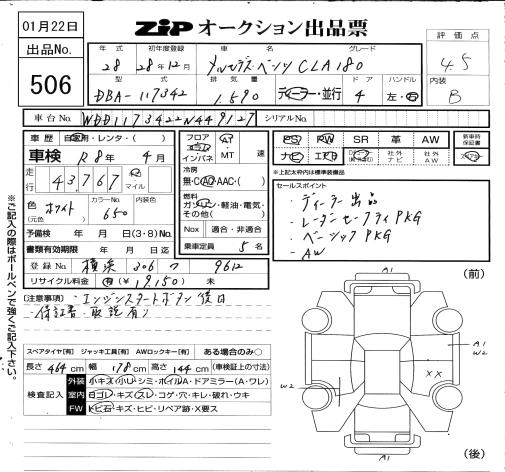 01月22日
ZIP オークション出品票
出品No.
506
評価点
4.5
内装
B
年式 初年度登録 車名 グレード
28 28年12月 メルセデス・ベンツ CLA180
型式 排気量 ドア ハンドル
DBA-117342 1.590 ディーラー・並行 4 左・右
車台No. WDD1173422N449127 シリアルNo.
車歴 自家用・レンタ・( )
車検 R8年 4月
走行 43,767 km マイル
色(元色) ホワイト カラーNo. 650 内装色
予備検 年 月 日(3・8)No.
書類有効期限 年 月 日迄
登録No. 横浜 306 9612
リサイクル料金 有(¥19,150) 未
フロア コラム インパネ AT MT 速
冷房 無・AC・AAC・( )
燃料 ガソリン・軽油・電気・その他( )
Nox 適合・非適合
乗車定員 5名
PS PW SR 革 AW
ナビ エアB 社外ナビ 社外AW
新車時保証書
※上記太枠内は標準装備品
セールスポイント
・ディーラー出品
・レーダーセーフティPKG
・ベーシックPKG
・AW
注意事項 ・エンジンスタートボタン後日
・保証書・取説有り
スペアタイヤ[有] ジャッキ工具[有] AWロックキー[有] ある場合のみ○
長さ 464cm 幅 178cm 高さ 144cm (車検証上の寸法)
検査記入
外装 小キズ・小U・シミ・ホイルA・ドアミラー(A・ワレ)
室内 ヨゴレ・キズ・スレ・コゲ・穴・キレ・破れ・ウキ
FW トビ石・キズ・ヒビ・リペア跡・X要ス
※ご記入の際はボールペンで強くご記入下さい。
(前)
A1
A1
W2
W2
XX
A1
(後)